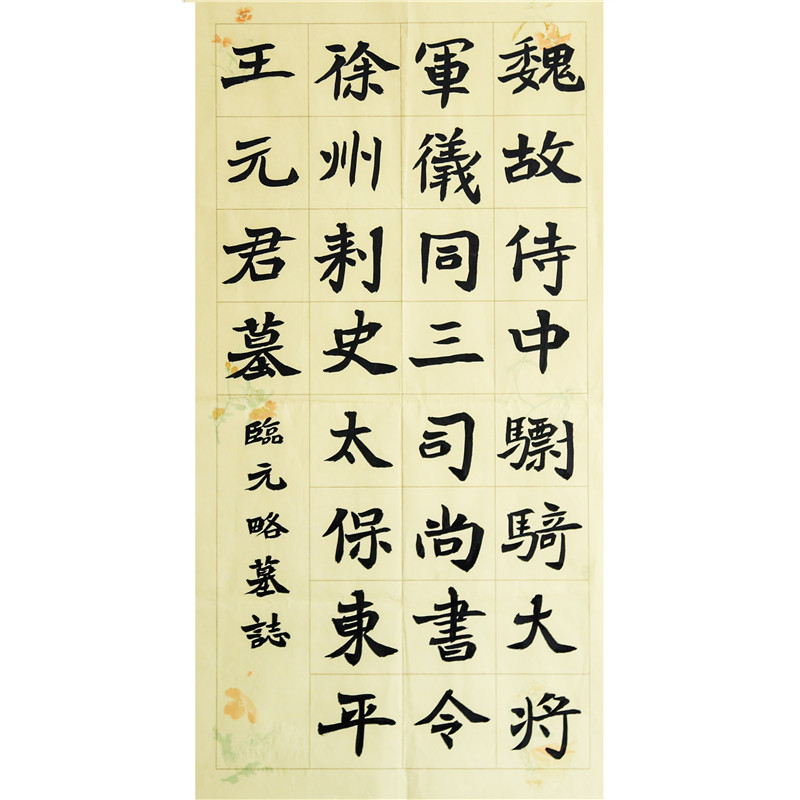 魏故侍中驃騎大将
軍儀同三司尚書令
徐州刺史太保東平
王元君墓
臨元略墓誌